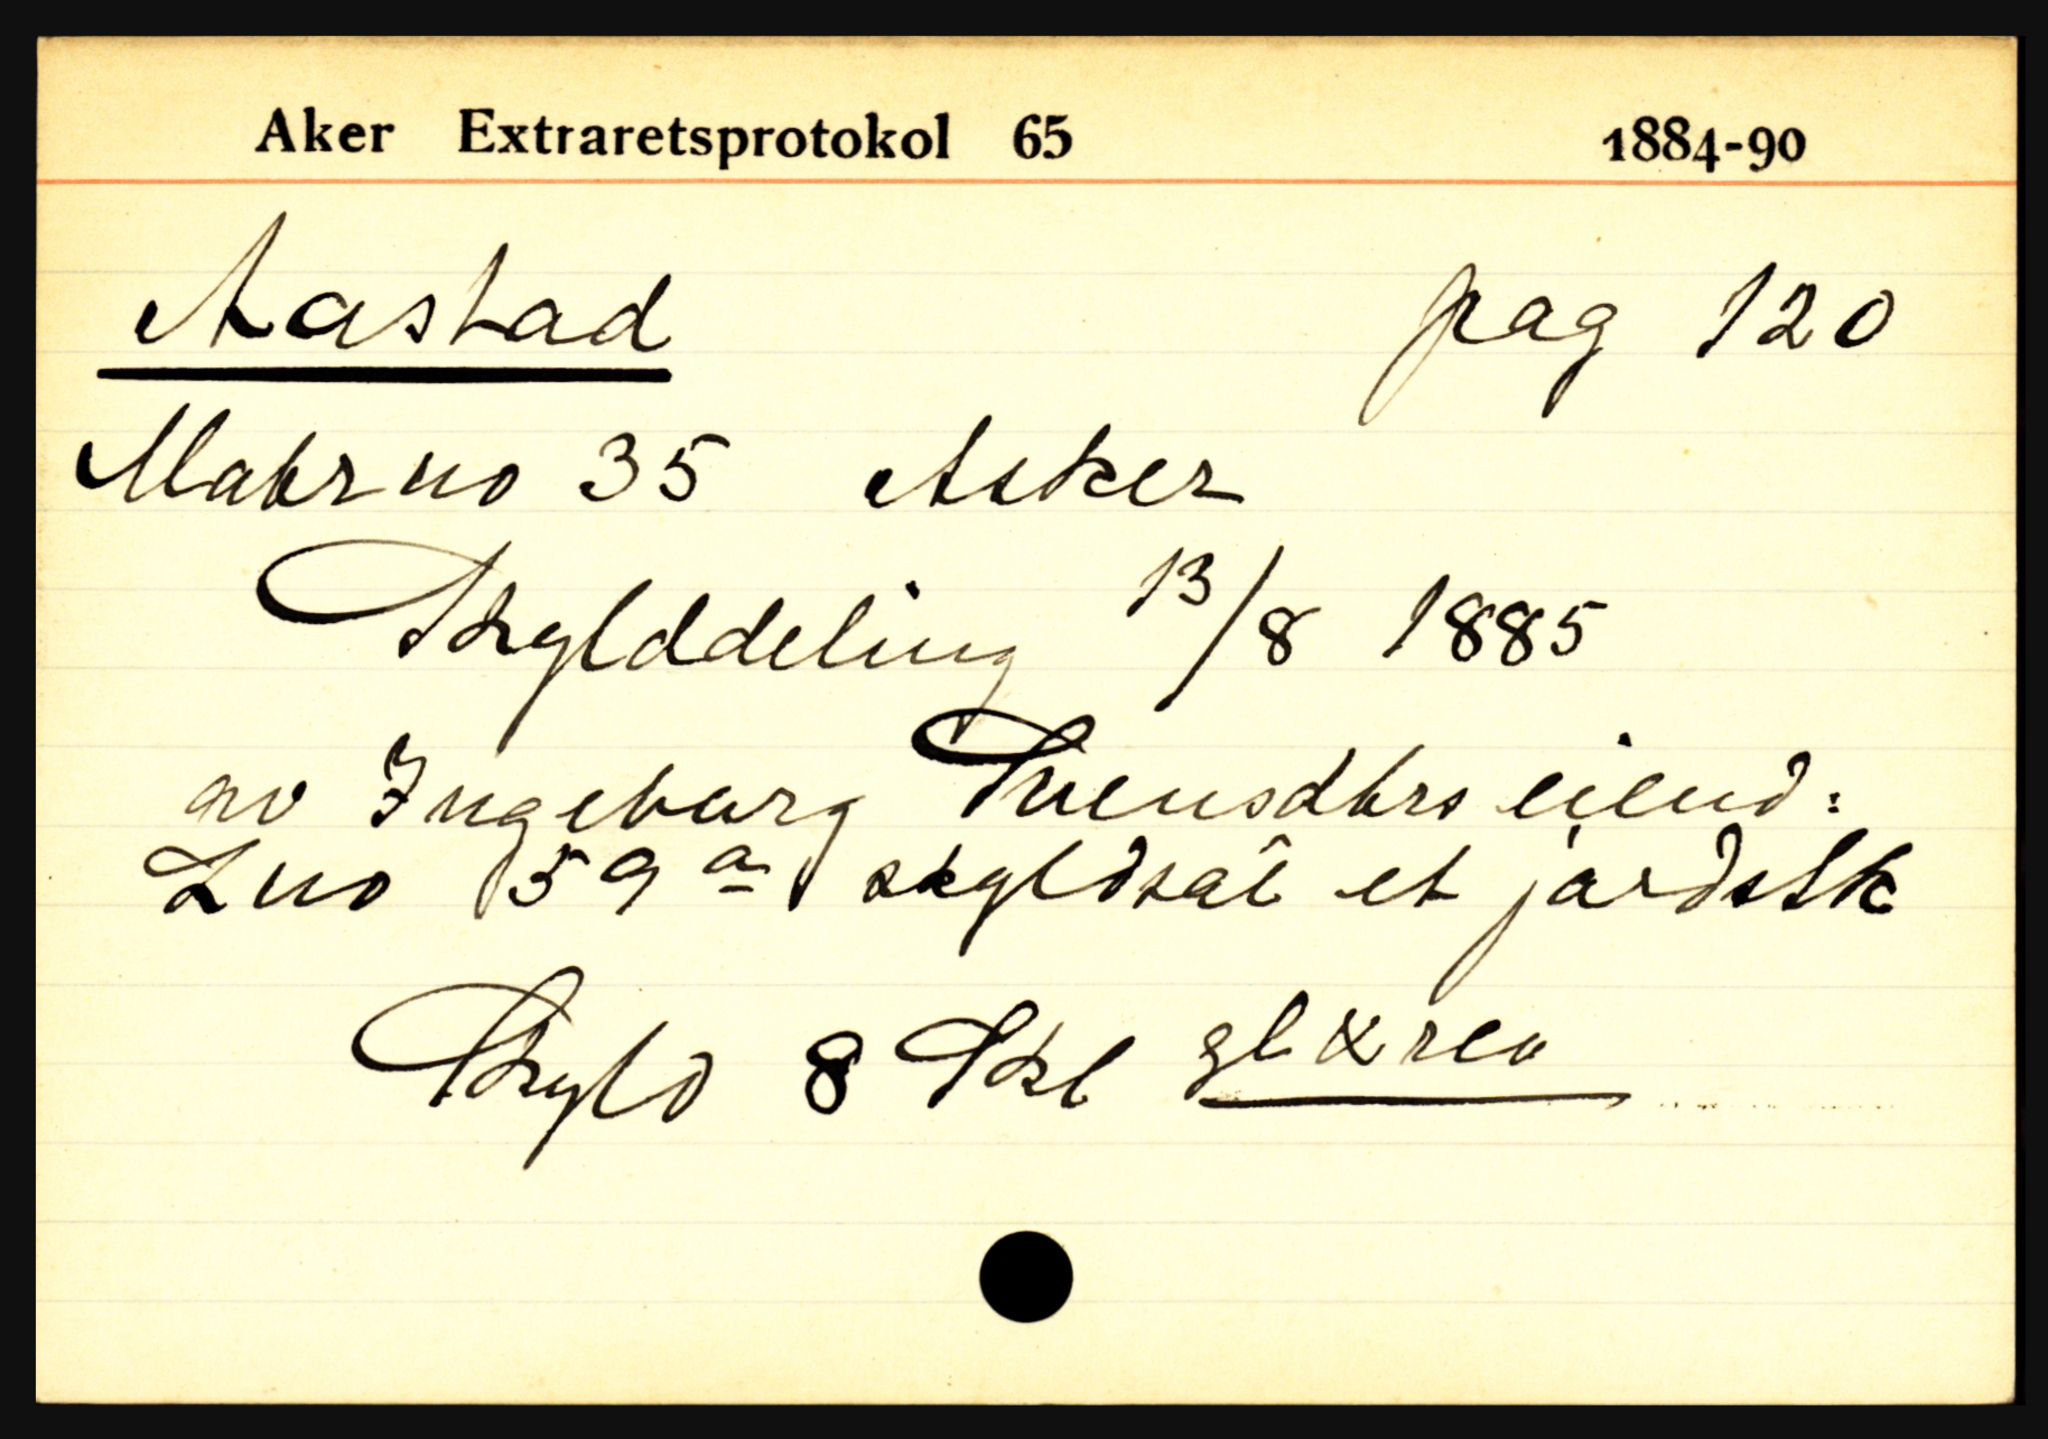 Aker Extraretsprotokol 65 1884-90
Aastad pag 120
Matr no 35 Asker
Skylddeling 13/8 1885
av Ingeborg Svensdtrs eiend:
Lno 59 a skyldsat et jordstk
Skyld 8 Skl gl